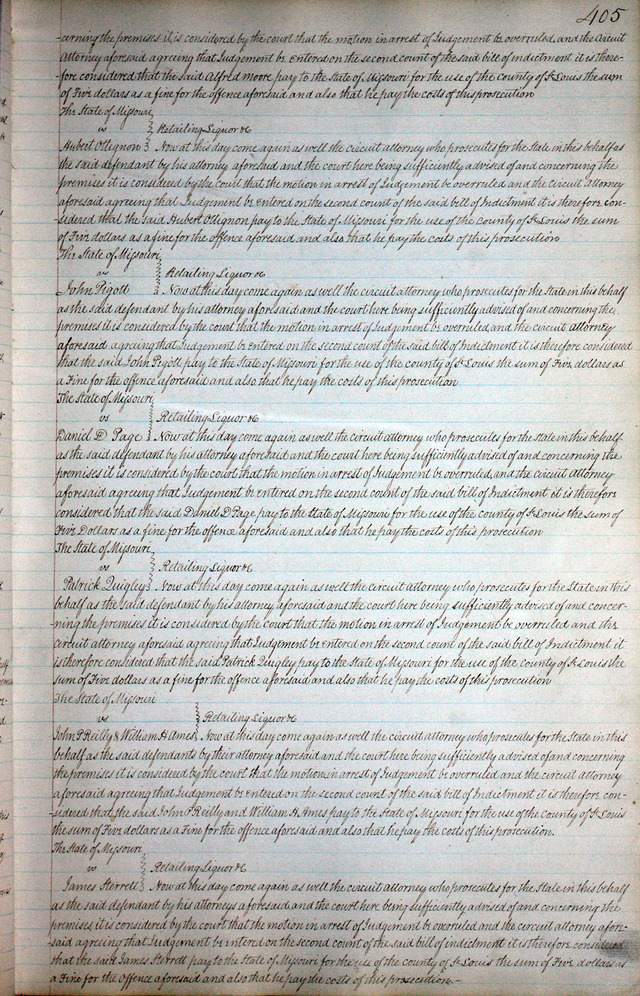 405
-cerning the premises it is considered by the court that the motion in arrest of Judgement be overruled, and the Circuit
Attorney aforesaid agreeing that Judgement be entered on the second count of the said bill of indictment it is there-
fore considered that the said Alfred Moore pay to the State of Missouri for the use of the county of St Louis the sum
of Five dollars as a fine for the offence aforesaid and also that he pay the costs of this prosecution
The State of Missouri
vs Retailing Liquor &c
Hubert Ollignon Now at this day come again as well the circuit attorney who prosecutes for the State in this behalf as
the said defendant by his attorney aforesaid and the court here being sufficiently advised of and concerning the
premises it is considered by the court that the motion in arrest of Judgement be overruled and the circuit Attorney
aforesaid agreeing that Judgement be entered on the second count of the said bill of Indictment it is therefore con-
sidered that the said Hubert Ollignon pay to the State of Missouri for the use of the county of St Louis the sum
of Five dollars as a fine for the offence aforesaid and also that he pay the costs of this prosecution
The State of Missouri
vs Retailing Liquor &c
John Pigott Now at this day come again as well the circuit attorney who prosecutes for the State in this behalf
as the said defendant by his attorney aforesaid and the court here being sufficiently advised of and concerning the
premises it is considered by the court that the motion in arrest of Judgement be overruled, and the circuit attorney
aforesaid agreeing that Judgement be entered on the second count of the said bill of indictment it is therefore considered
that the said John Pigott pay to the State of Missouri for the use of the county of St Louis the sum of Five dollars as
a Fine for the offence aforesaid and also that he pay the costs of this prosecution
The State of Missouri
vs Retailing Liquor &c
Daniel D Page Now at this day come again as well the circuit attorney who prosecutes for the state in this behalf
as the said defendant by his attorney aforesaid and the court here being sufficiently advised of and concerning the
premises it is considered by the court that the motion in arrest of Judgement be overruled, and the circuit attorney
aforesaid agreeing that Judgement be entered on the second count of the said bill of Indictment it is therefore
considered that the said Daniel D Page pay to the State of Missouri for the use of the county of St Louis the sum of
Five Dollars as a fine for the offence aforesaid and also that he pay the costs of this prosecution
The State of Missouri
vs Retailing Liquor &c
Patrick Quigley Now at this day come again as well the circuit attorney who prosecutes for the State in this
behalf as the said defendant by his attorney aforesaid and the court here being sufficiently advised of and concer-
ning the premises it is considered by the court that the motion in arrest of Judgement be overruled and the
circuit attorney aforesaid agreeing that Judgement be entered on the second count of the said bill of Indictment it
is therefore considered that the said Patrick Quigley pay to the State of Missouri for the use of the county of St Louis the
sum of Five dollars as a fine for the offence aforesaid and also that he pay the costs of this prosecution
The State of Missouri
vs Retailing Liquor &c
John P Reilly & William H Ames Now at this day come again as well the circuit attorney who prosecutes for the State in this
behalf as the said defendants by their attorney aforesaid and the court here being sufficiently advised of and concerning
the premises it is considered by the court that the motion in arrest of Judgement be overruled and the circuit attorney
aforesaid agreeing that Judgement be entered on the second count of the said bill of Indictment it is therefore con-
sidered that the said John P Reilly and William H Ames pay to the State of Missouri for the use of the county of St Louis
the sum of Five dollars as a Fine for the offence aforesaid and also that he pay the costs of this prosecution.
The State of Missouri
vs Retailing Liquor &c
James Sterrett Now at this day come again as well the circuit attorney who prosecutes for the State in this behalf
as the said defendant by his attorneys aforesaid and the court here being sufficiently advised of and concerning the
premises it is considered by the court that the motion in arrest of Judgement be overruled and the circuit attorney afore-
said agreeing that Judgement be entered on the second count of the said bill of indictment it is therefore considered
that the said James Sterrett pay to the State of Missouri for the use of the county of St Louis the sum of Five dollars as
a Fine for the Offence aforesaid and also that he pay the costs of this prosecution.-